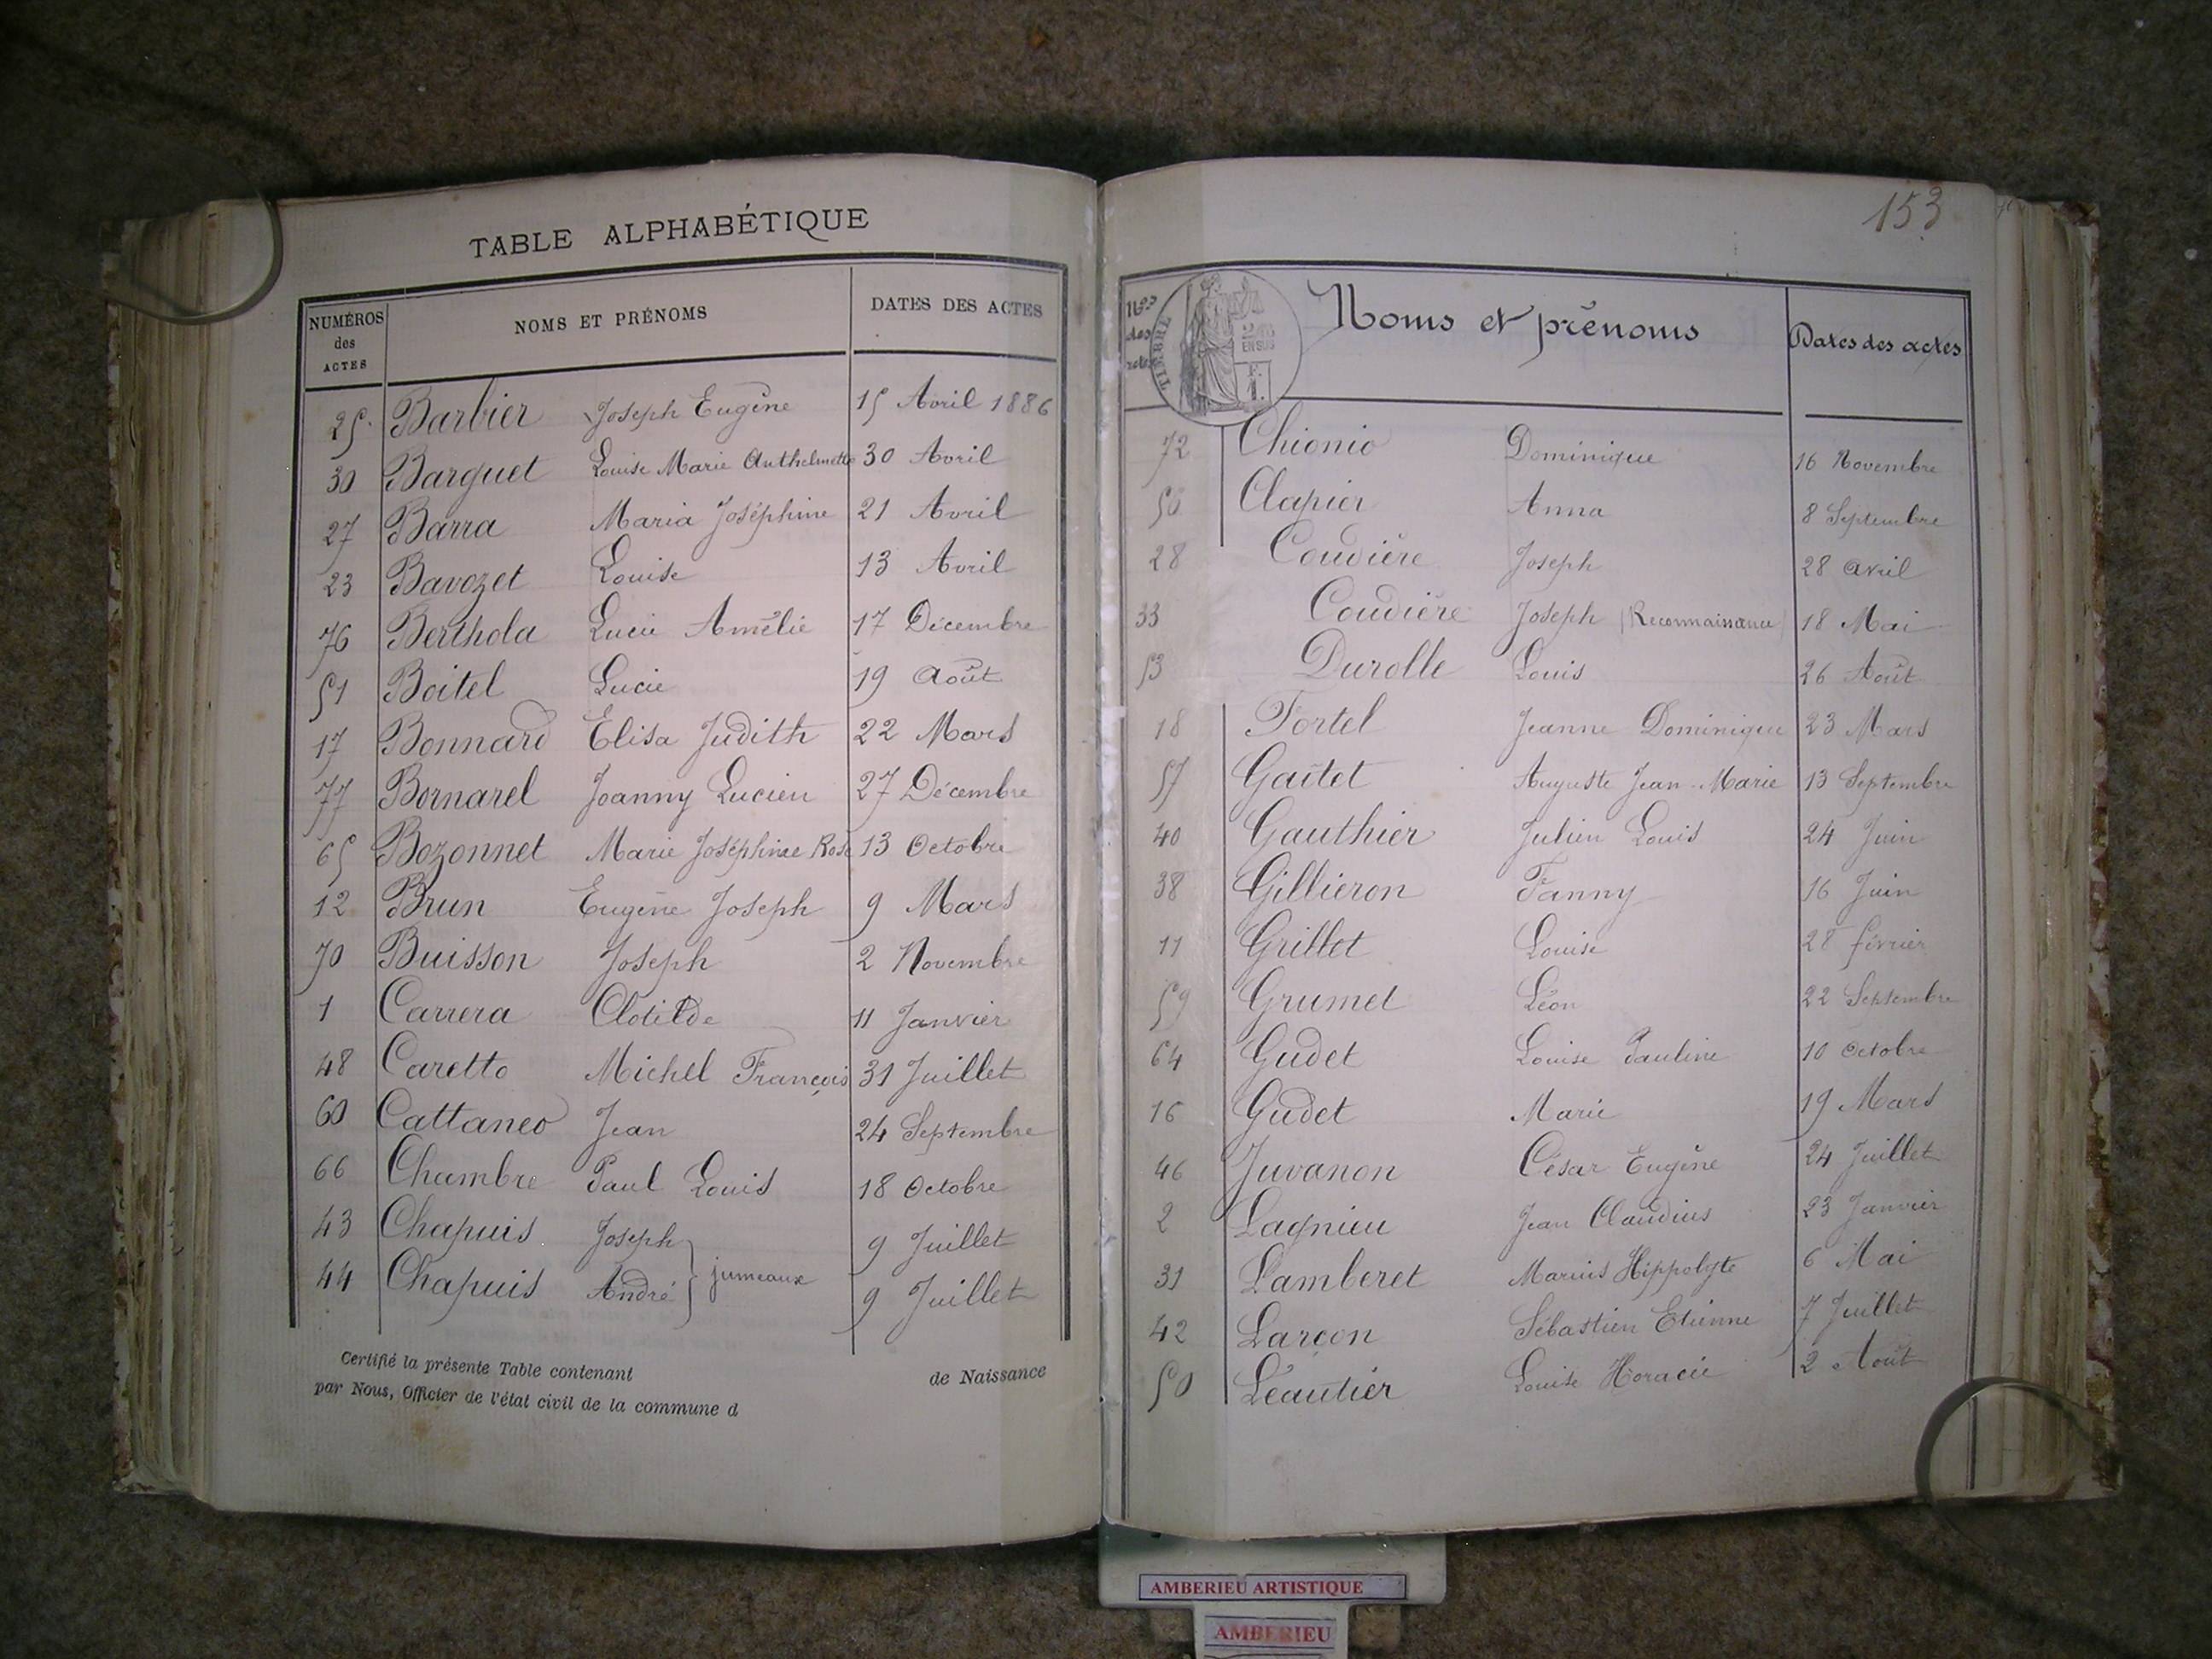 TABLE ALPHABÉTIQUE
NUMÉROS des ACTES NOMS ET PRÉNOMS DATES DES ACTES
25. Barbier Joseph Eugène 15 Avril 1886
30 Barguet Louise Marie Anthelmette 30 Avril
27 Barra Maria Joséphine 21 Avril
23 Bavozet Louise 13 Avril
76 Berthola Lucie Amélie 17 Décembre
51 Boitel Lucie 19 Août
17 Bonnard Elisa Judith 22 Mars
77 Bornarel Joanny Lucien 27 Décembre
65 Bozonnet Marie Joséphine Rose 13 Octobre
12 Brun Eugène Joseph 9 Mars
70 Buisson Joseph 2 Novembre
1 Carrera Clotilde 11 Janvier
48 Caretto Michel François 31 Juillet
60 Cattaneo Jean 24 Septembre
66 Chambre Paul Louis 18 Octobre
43 Chapuis Joseph 9 Juillet
jumeaux
44 Chapuis André 9 Juillet
Certifié la présente Table contenant de Naissance
par Nous, Officier de l'état civil de la commune d
153
Nos des actes Noms et prénoms Dates des actes
TIMBRE
EN SUS
72 Chionio Dominique 16 Novembre
Clapier Anna 8 Septembre
28 Coudière Joseph 28 Avril
33 Coudière Joseph (Reconnaissance) 18 Mai
53 Durolle Louis 26 Août
18 Fortel Jeanne Dominique 23 Mars
57 Gaîtet Auguste Jean-Marie 13 Septembre
40 Gauthier Julien Louis 24 Juin
38 Gilliéron Fanny 16 Juin
11 Grillet Louise 28 février
59 Grumet Léon 22 Septembre
64 Gudet Louise Pauline 10 Octobre
16 Gudet Marie 19 Mars
46 Juvanon César Eugène 24 Juillet
2 Lagnieu Jean Claudius 23 Janvier
31 Lamberet Marius Hippolyte 6 Mai
42 Larçon Sébastien Etienne 7 Juillet
50 Léautier Louise Horacie 2 Août
AMBERIEU ARTISTIQUE
AMBERIEU